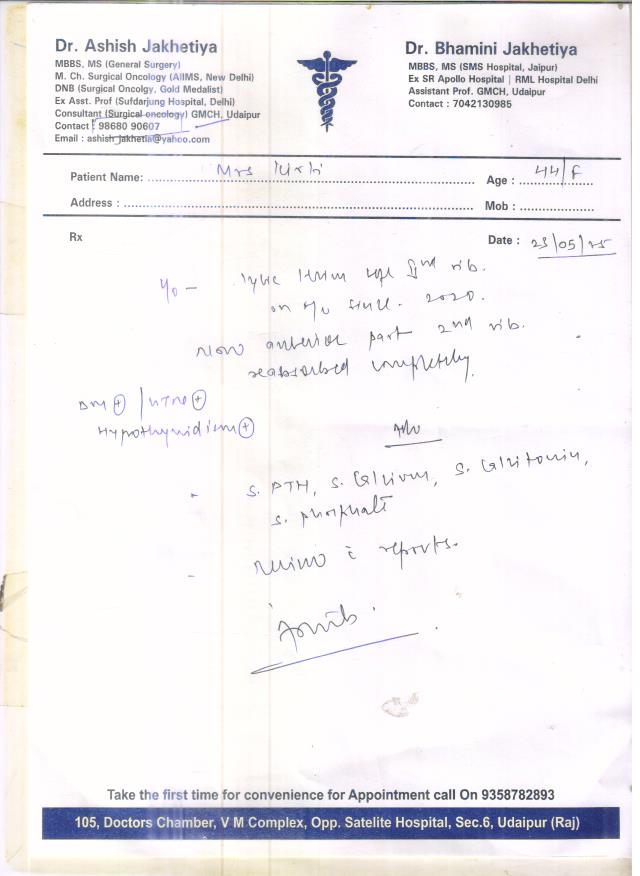 Dr. Ashish Jakhetiya
MBBS, MS (General Surgery)
M. Ch. Surgical Oncology (AIIMS, New Delhi)
DNB (Surgical Oncolgy, Gold Medalist)
Ex Asst. Prof (Sufdarjung Hospital, Delhi)
Consultant (Surgical oncology) GMCH, Udaipur
Contact : 98680 90607
Email : ashish_jakhetia@yahoo.com
Dr. Bhamini Jakhetiya
MBBS, MS (SMS Hospital, Jaipur)
Ex SR Apollo Hospital | RML Hospital Delhi
Assistant Prof. GMCH, Udaipur
Contact : 7042130985
Patient Name: Mrs
Age : 44/F
Address :
Mob :
Rx
Date : 23/05/25
lytic lesion left IInd rib.
on f/u since. 2020.
Now anterior part 2nd rib.
reabsorbed completely.
DM (+) / HTN (+)
Hypothyroidism (+)
Adv
- S. PTH, S. Calcium, S. Calcitonin,
S. phosphate
- Review c̄ reports.
Take the first time for convenience for Appointment call On 9358782893
105, Doctors Chamber, V M Complex, Opp. Satelite Hospital, Sec.6, Udaipur (Raj)